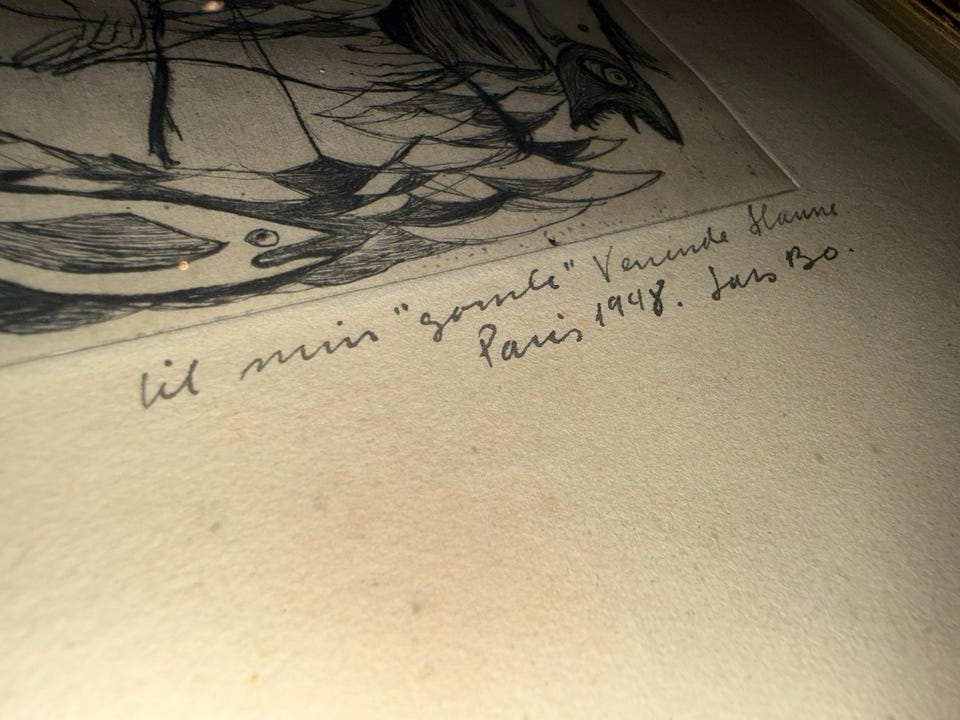 til min "gamle" Veninde Hanne
Paris 1948. Lars Bo.